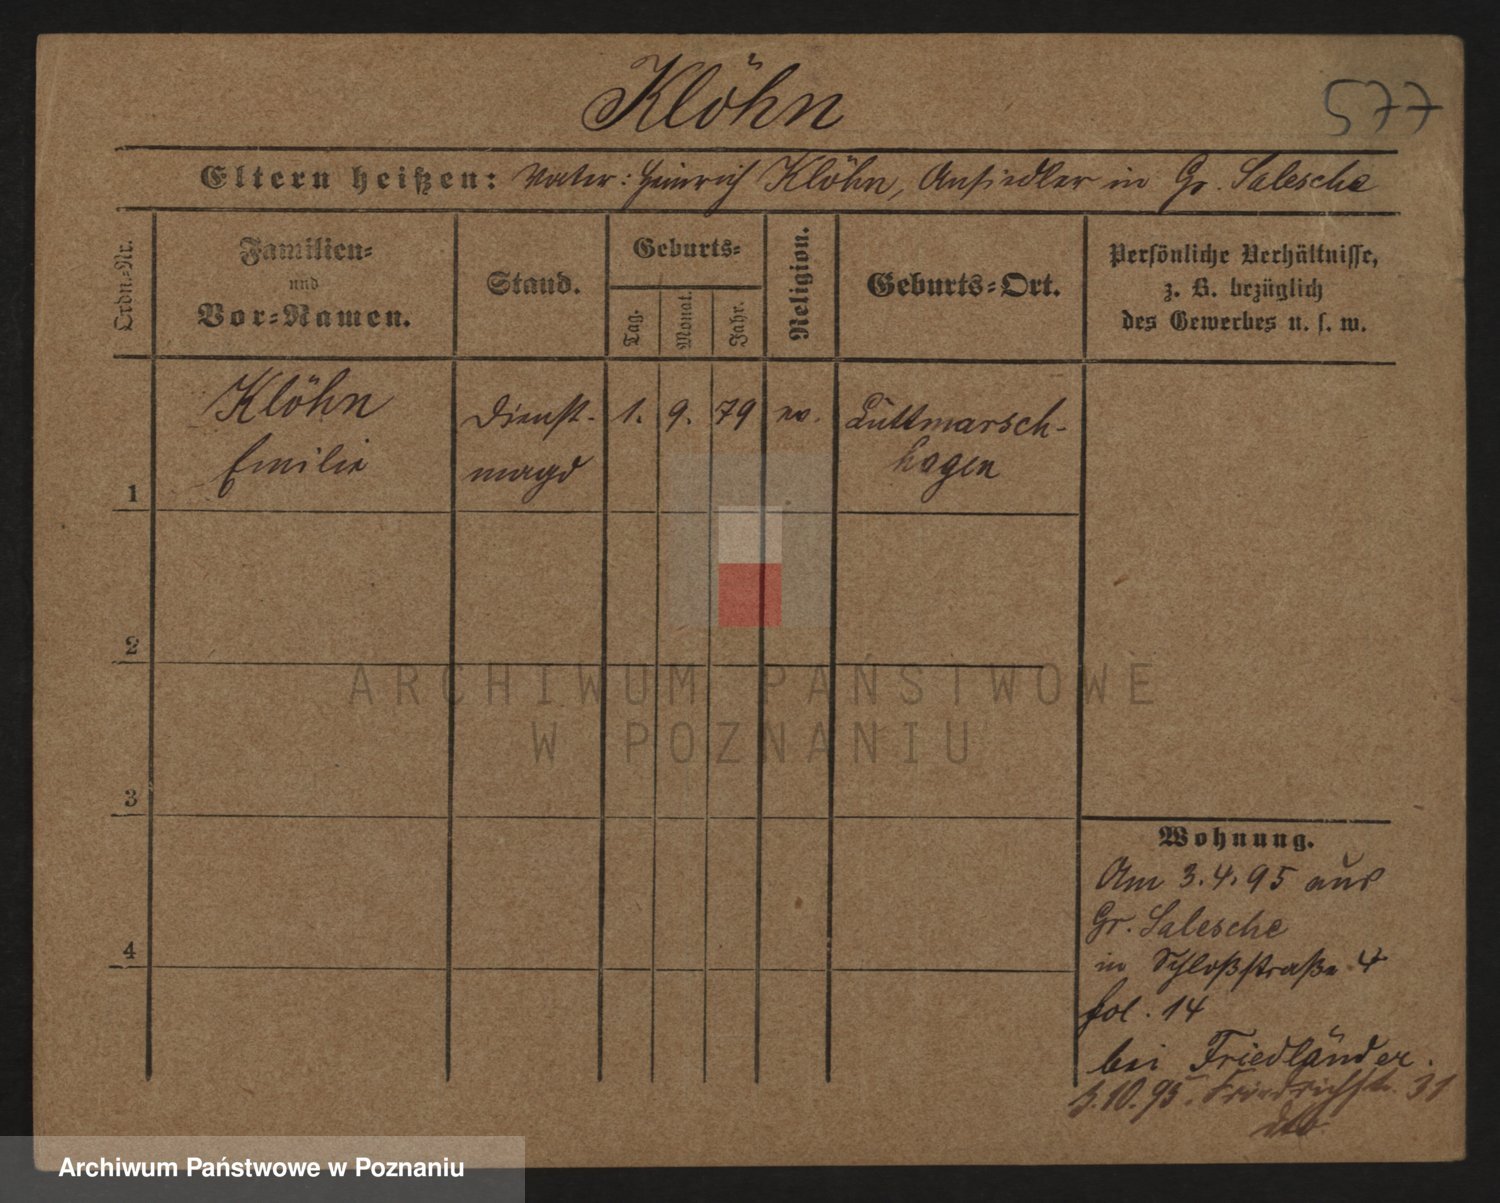 Klöhn
577
Eltern heißen: Vater: Heinrich Klöhn, Ansiedler in Gr. Salesche
Ordn.-Nr.
Familien-
und
Vor-Namen.
Stand.
Geburts-
Tag.
Monat.
Jahr.
Religion.
Geburts-Ort.
Persönliche Verhältnisse,
z. B. bezüglich
des Gewerbes u. s. w.
Klöhn
Emilie
Dienst-
magd
1. 9. 79 ev.
Lüttmarsch-
hagen
1
2
3
4
ARCHIWUM PAŃSTWOWE
W POZNANIU
Wohnung.
Am 3.4.95 aus
Gr. Salesche
in Schloßstraße 4
fol. 14
bei Friedländer.
3.10.95. Friedrichstr. 31
Archiwum Państwowe w Poznaniu